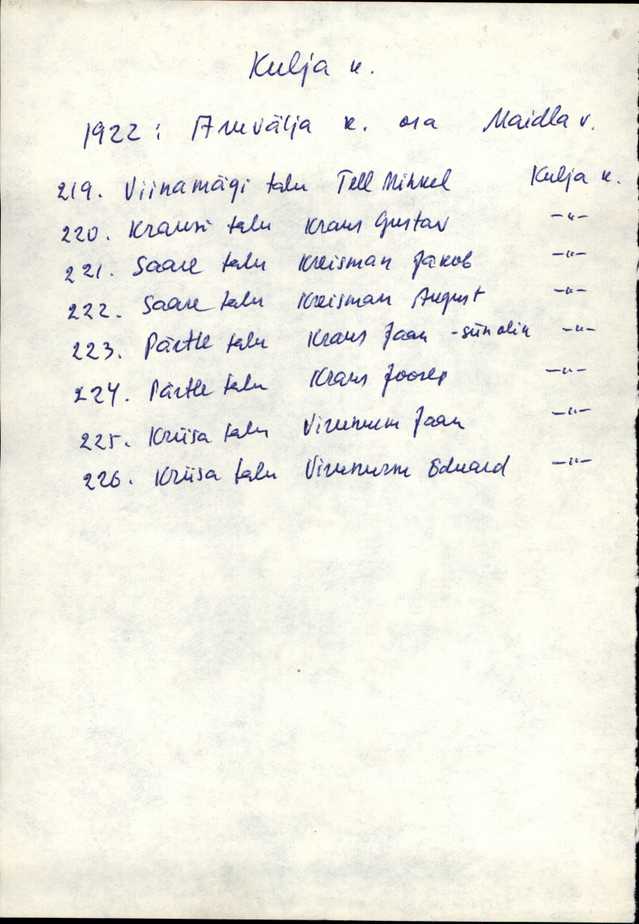 Kulja k.
1922: Aruvälja k. osa Maidla v.
219. Viinamägi talu Tell Mihkel Kulja k.
220. Krausi talu Kraus Gustav —"—
221. Saare talu Kreisman Jakob —"—
222. Saare talu Kreisman August —"—
223. Pärtle talu Kraus Jaan —"—
224. Pärtle talu Kraus Joosep —"—
225. Kriisa talu Virunurm Jaan —"—
226. Kriisa talu Virunurm Eduard —"—